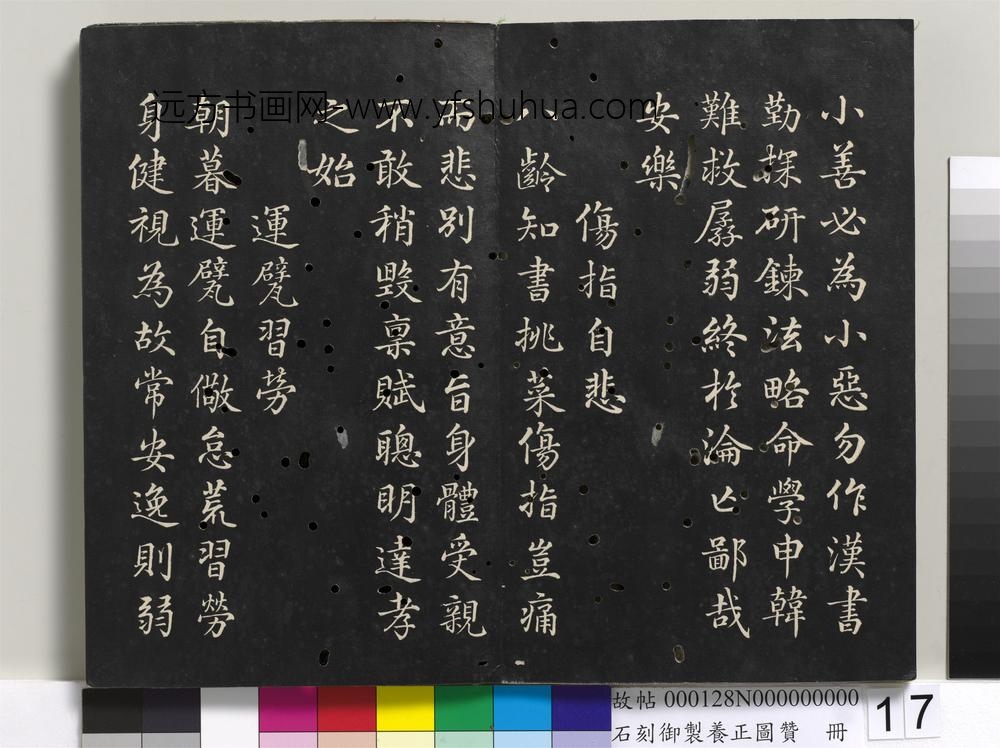 小善必為小惡勿作漢書
勤探研鍊法略命學申韓
難救孱弱終於淪亡鄙哉
安樂
傷指自悲
八齡知書挑菜傷指豈痛
而悲別有意旨身體受親
不敢稍毀稟賦聰明達孝
之始
運甓習勞
朝暮運甓自儆怠荒習勞
身健視為故常安逸則弱
远方书画网-www.yfshuhua.com
故帖 000128N000000000
石刻御製養正圖贊 冊
17